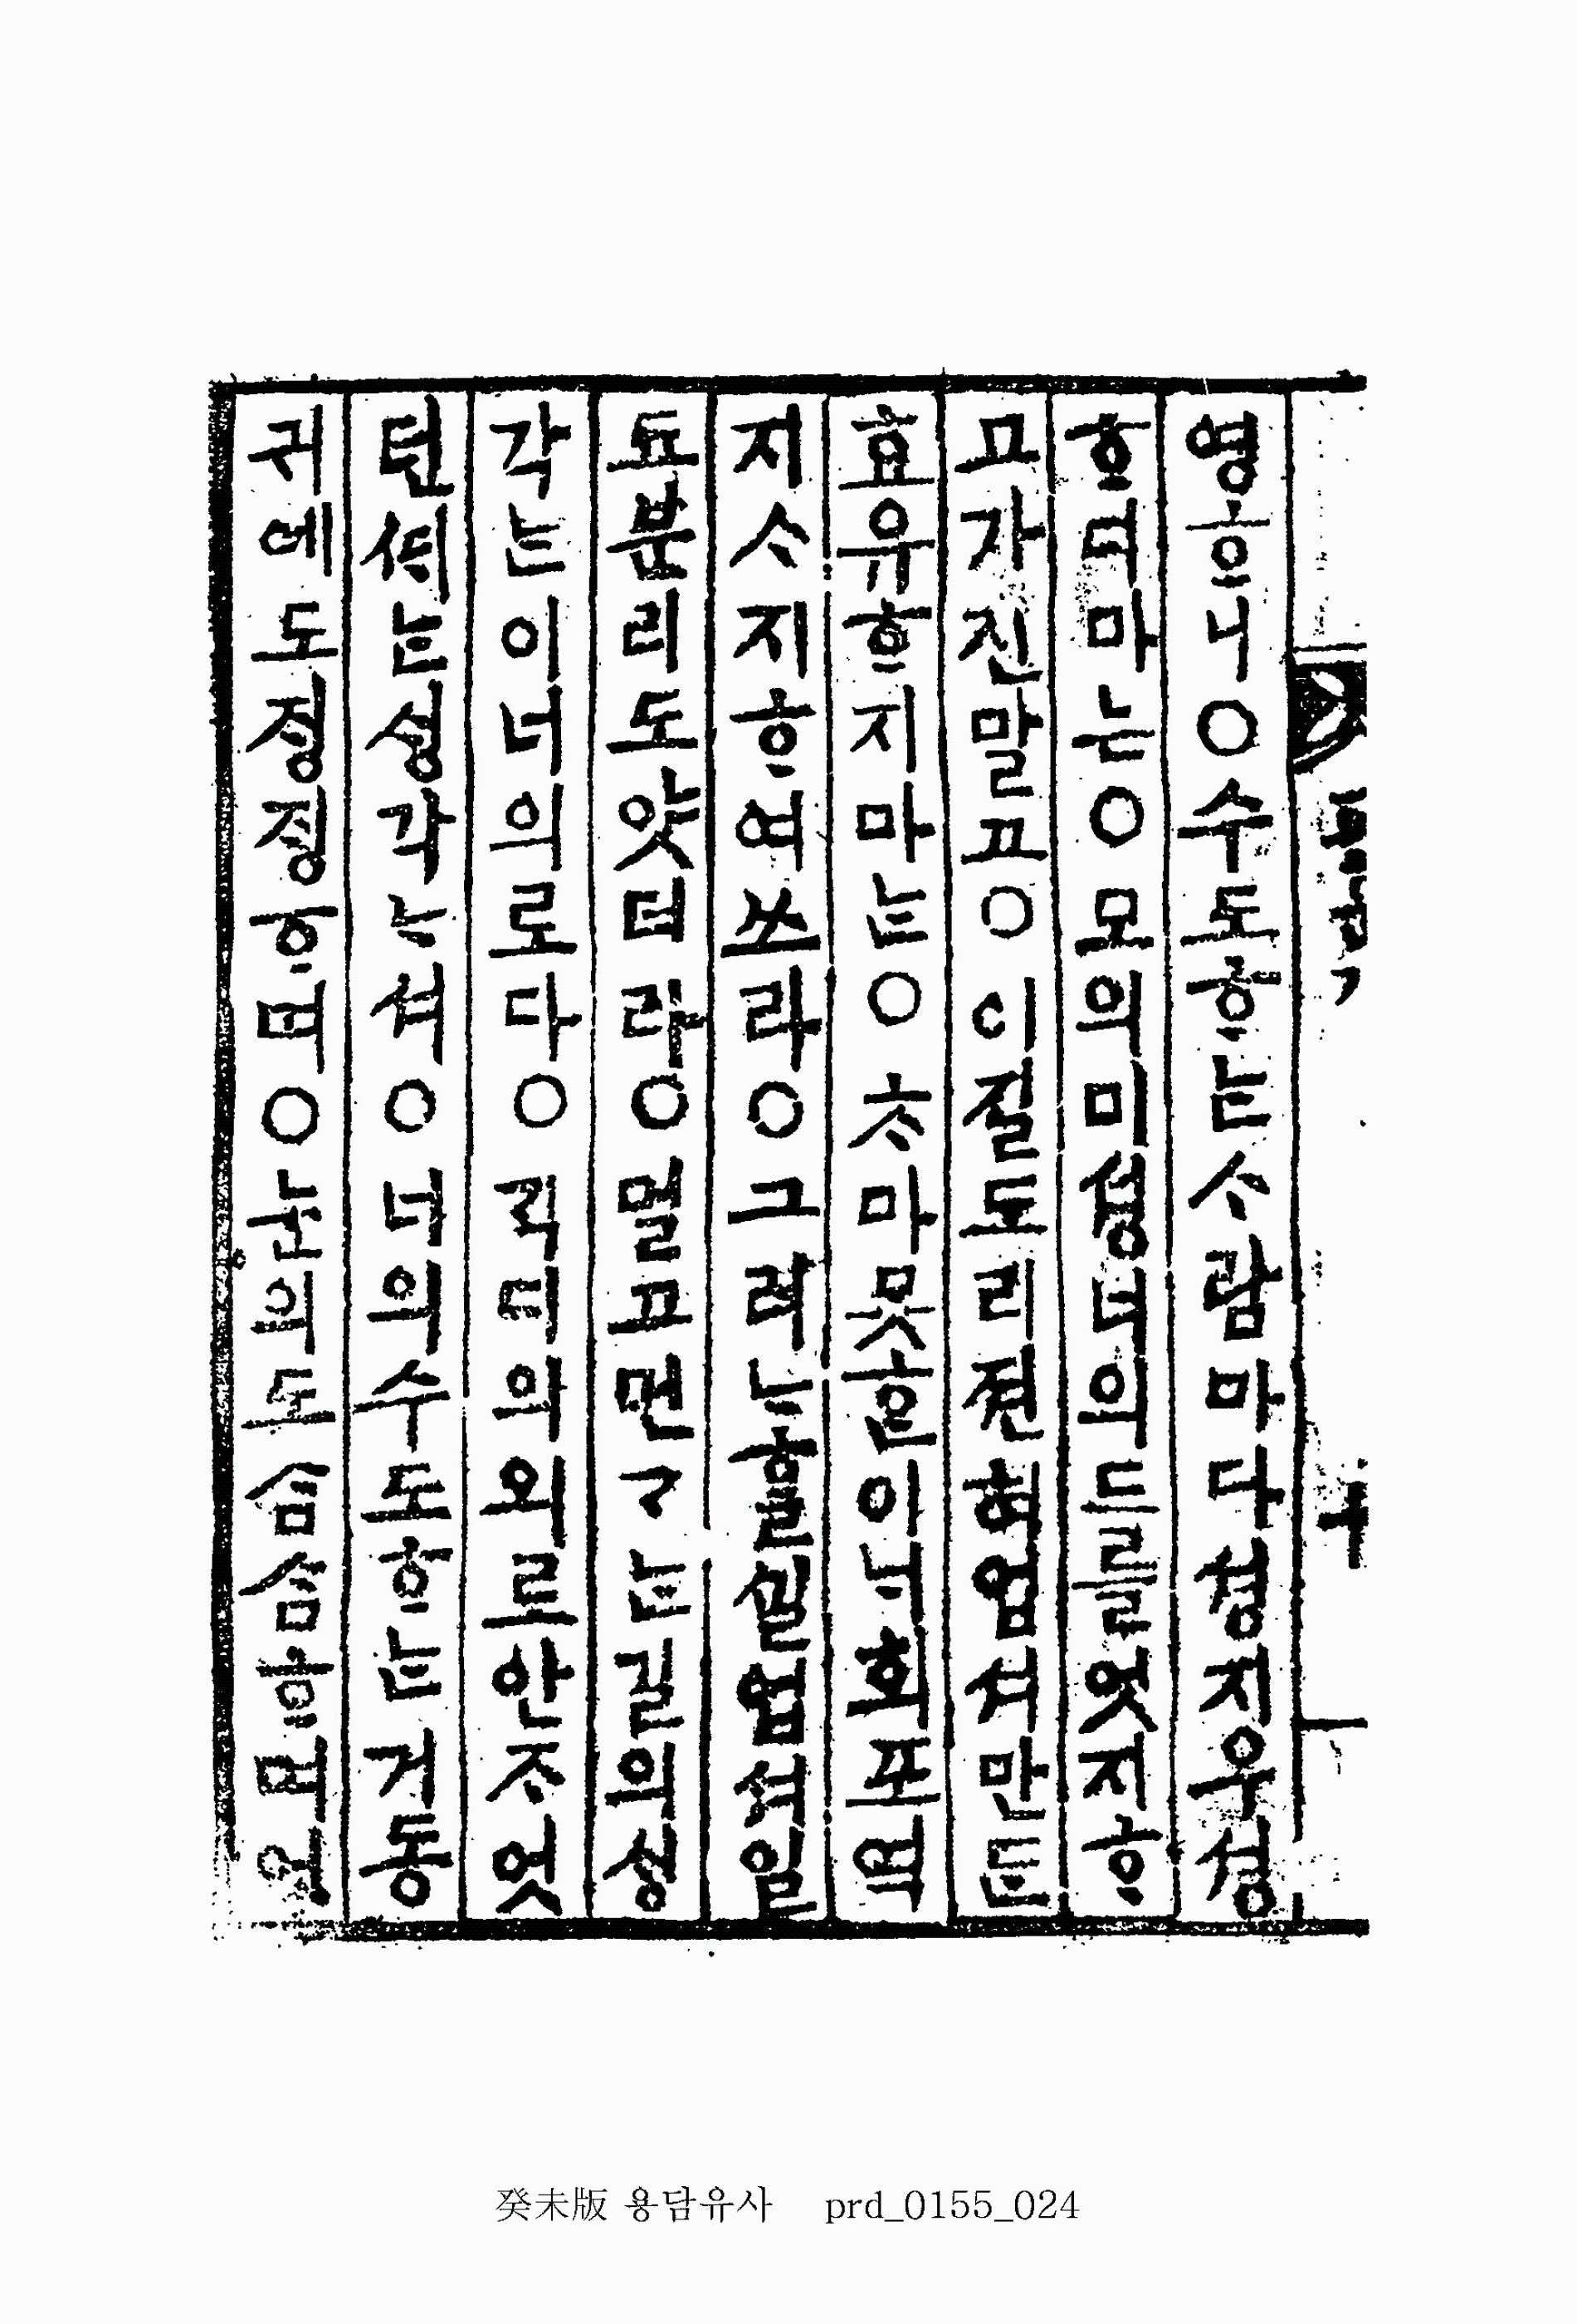 영ᄒᆞ니○수도ᄒᆞᄂᆞᆫᄉᆞ람마다셩지우셩
ᄒᆞ뎌마는○모의미셩너의드를엇지ᄒᆞ
고가진말고○이질도리젼혀업셔만ᄃᆞᆫ
효유ᄒᆞ지마ᄂᆞᆫ○ᄎᆞ마못ᄒᆞᆫ이ᄂᆡ회포역
지ᄉᆞ지ᄒᆞ여쓰라○그려ᄂᆞᄒᆞᆯ실업셔일
됴분리도얏더라○멀고먼ᄀᆞᄂᆞᆫ길의ᄉᆡᆼ
각ᄂᆞᆫ이너의로다○ᄀᆡᆨ디의외로안ᄌᆞ엇
턴ᄯᆡᄂᆞᆫᄉᆡᆼ각ᄂᆞ셔○너의수도ᄒᆞᄂᆞᆫ거동
귀에도졍졍ᄒᆞ며○눈의도ᄉᆞᆷᄉᆞᆷᄒᆞ며엇
癸未版 용담유사 prd_0155_024